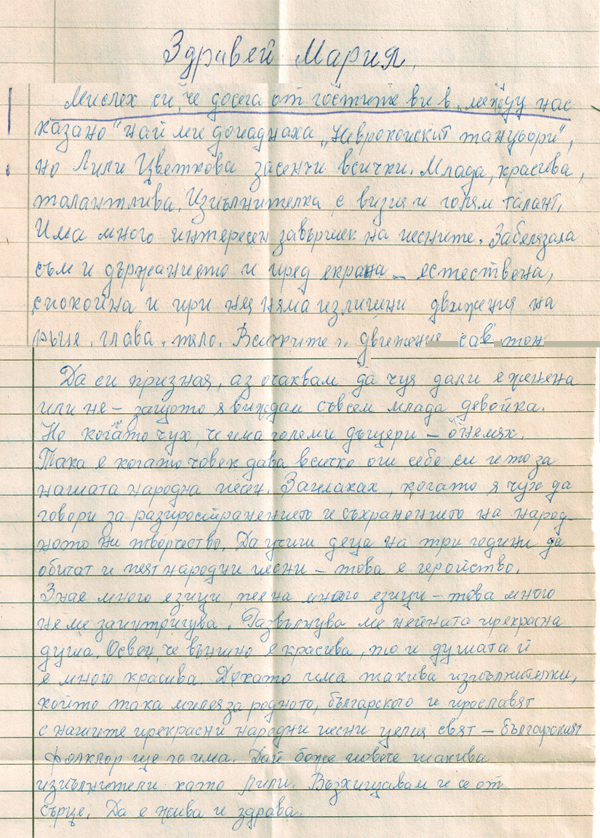 Здравей Мария,
Мислех си, че досега от гостите ви в „между нас
казано" най ми допаднаха „Неврокопските танцьори",
но Лили Цветкова засенчи всички. Млада, красива,
талантлива. Изпълнителка с визия и голям талант.
Има много интересен завършек на песните. Забелязала
съм и държанието и пред екрана – естествена,
спокойна и при нея няма излишни движения на
ръце, глава, тяло. Всичките ѝ движения са в тон
Да си призная, аз очаквам да чуя дали е женена
или не – защото я виждам съвсем млада девойка.
Но когато чух, че има големи дъщери – онемях.
Така е когато човек дава всичко от себе си и то за
нашата народна песен. Заплаках, когато я чух да
говори за разпространението и съхранението на народ-
ното ни творчество. Да учиш деца на три години да
обичат и пеят народни песни – това е геройство.
Знае много езици, пее на много езици – това много
не ме заинтригува. Развълнува ме нейната прекрасна
душа. Освен, че външно е красива, то и душата ѝ
е много красива. Докато има такива изпълнителки,
който така милея за родното, българското и прославят
с нашите прекрасни народни песни целия свят – българският
фолклор ще го има. Дай боже повече такива
изпълнители като Лили. Възхищавам и се от
сърце. Да е жива и здрава.